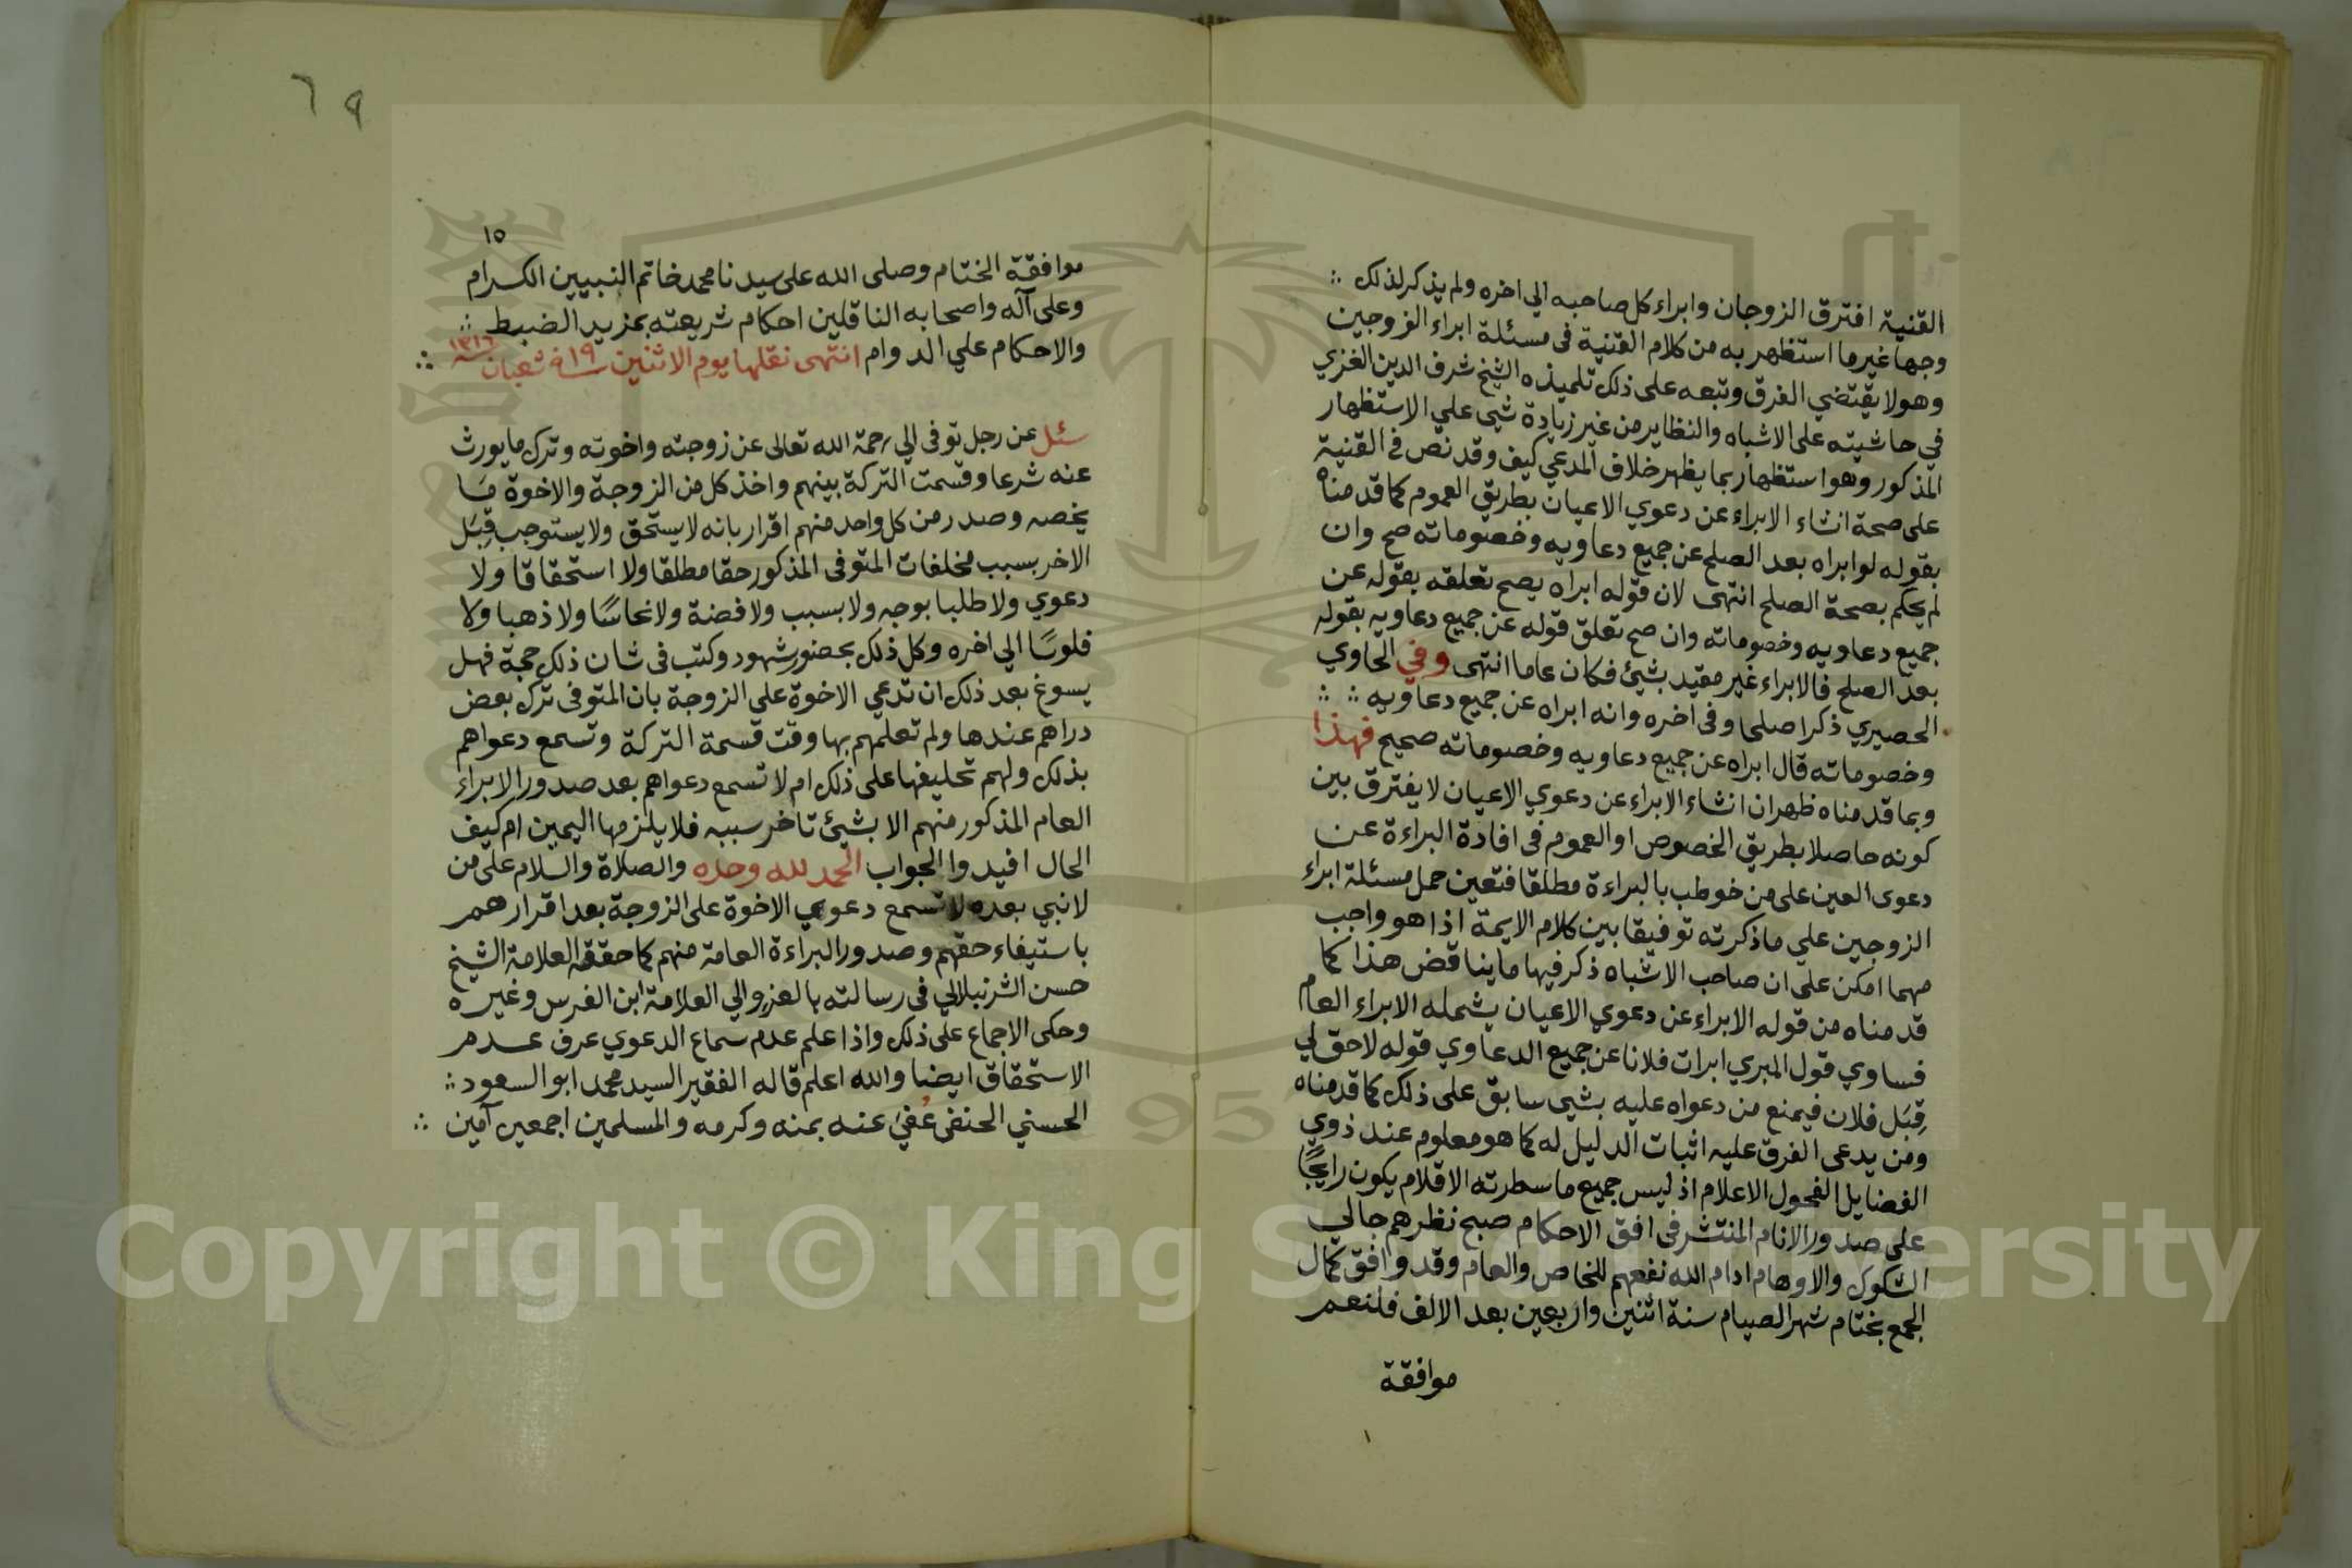 القنية افترق الزوجان وابراء كل صاحبه الي اخره ولم يذكر لذلك
وجها غير ما استظهر به من كلام القنية في مسئلة ابراء الزوجين
وهو لا يقتضي الفرق وتبعه على ذلك تلميذه الشيخ شرف الدين الغزي
في حاشيته على الاشباه والنظاير من غير زيادة شي علي الاستظهار
المذكور وهو استظهار بما يظهر خلاف المدعي كيف وقد نص في القنية
على صحة انشاء الابراء عن دعوي الاعيان بطريق العموم كما قدمناه
بقوله لو ابراه بعد الصلح عن جميع دعاويه وخصوماته صح وان
لم يحكم بصحة الصلح انتهى لان قوله ابراه يصح تعلقه بقوله عن
جميع دعاويه وخصوماته وان صح تعلق قوله عن جميع دعاويه بقوله
بعد الصلح فالابراء غير مقيد بشيئ فكان عاما انتهى وفي الحاوي
الحصيري ذكر اصلحا وفى اخره وانه ابراه عن جميع دعاويه
وخصوماته قال ابراه عن جميع دعاويه وخصوماته صحيح فهذا
وبما قدمناه ظهر ان انشاء الابراء عن دعوي الاعيان لا يفترق بين
كونه حاصلا بطريق الخصوص او العموم فى افادة البراءة عن
دعوى العين على من خوطب بالبراءة مطلقا فتعين حمل مسئلة ابراء
الزوجين علي ما ذكرته توفيقا بين كلام الايمة اذا هو واجب
مهما امكن علي ان صاحب الاشباه ذكر فيها ما يناقض هذا كما
قدمناه من قوله الابراء عن دعوي الاعيان يشمله الابراء العام
فساوي قول المبري ابرات فلانا عن جميع الدعاوي قوله لا حق لي
قِبَل فلان فيمنع من دعواه عليه بشي سابق على ذلك كما قدمناه
ومن يدعى الفرق عليه اثبات الدليل له كما هو معلوم عند ذوي
الفضايل الفحول الاعلام اذ ليس جميع ما سطرته الاقلام يكون رايجًا
علي صدور الانام المنتشر فى افق الاحكام صبح نظرهم جالي
الشكوك والاوهام ادام الله نفعهم للخاص والعام وقد وافق كمال
الجمع بختام شهر الصيام سنة اثنين واربعين بعد الالف فلنعم
موافقة
٦٩
١٥
موافقة الختام وصلى الله على سيدنا محمد خاتم النبيين الكرام
وعلى آله واصحابه الناقلين احكام شريعته بمزيد الضبط
والاحكام علي الدوام انتهى نقلها يوم الاثنين ١٩ شعبان سنة ١٣١٦
سئل عن رجل توفى الي رحمة الله تعالى عن زوجته واخوته وترك ما يورث
عنه شرعا وقسمت التركة بينهم واخذ كل من الزوجة والاخوة مَا
يخصه وصدر من كل واحد منهم اقرار بانه لا يستحق ولا يستوجب قِبَل
الاخر بسبب مخلفات المتوفى المذكور حقا مطلقا ولا استحقاقا ولا
دعوي ولا طلبا بوجه ولا بسبب ولا فضة ولا نحاسًا ولا ذهبا ولا
فلوسًا الي اخره وكل ذلك بحضور شهود وكتب فى شان ذلك حجة فهل
يسوغ بعد ذلك ان تدعي الاخوة على الزوجة بان المتوفى ترك بعض
دراهم عندها ولم تعلمهم بها وقت قسمة التركة وتسمع دعواهم
بذلك ولهم تحليفها على ذلك ام لا تسمع دعواهم بعد صدور الابراء
العام المذكور منهم الا بشيئ تاخر سببه فلا يلزمها اليمين ام كيف
الحال افيدوا الجواب الحمد لله وحده والصلاة والسلام على من
لا نبي بعده لا تسمع دعوي الاخوة على الزوجة بعد اقرارهم
باستيفاء حقهم وصدور البراءة العامة منهم كما حققه العلامة الشيخ
حسن الشرنبلالي في رسالته بالعزو الي العلامة ابن الغرس وغيره
وحكى الاجماع على ذلك واذا علم عدم سماع الدعوي عرف عدم
الاستحقاق ايضا والله اعلم قاله الفقير السيد محمد ابو السعود
الحسني الحنفى عُفيَ عنه بمنه وكرمه والمسلمين اجمعين آمين
Copyright © King Saud University